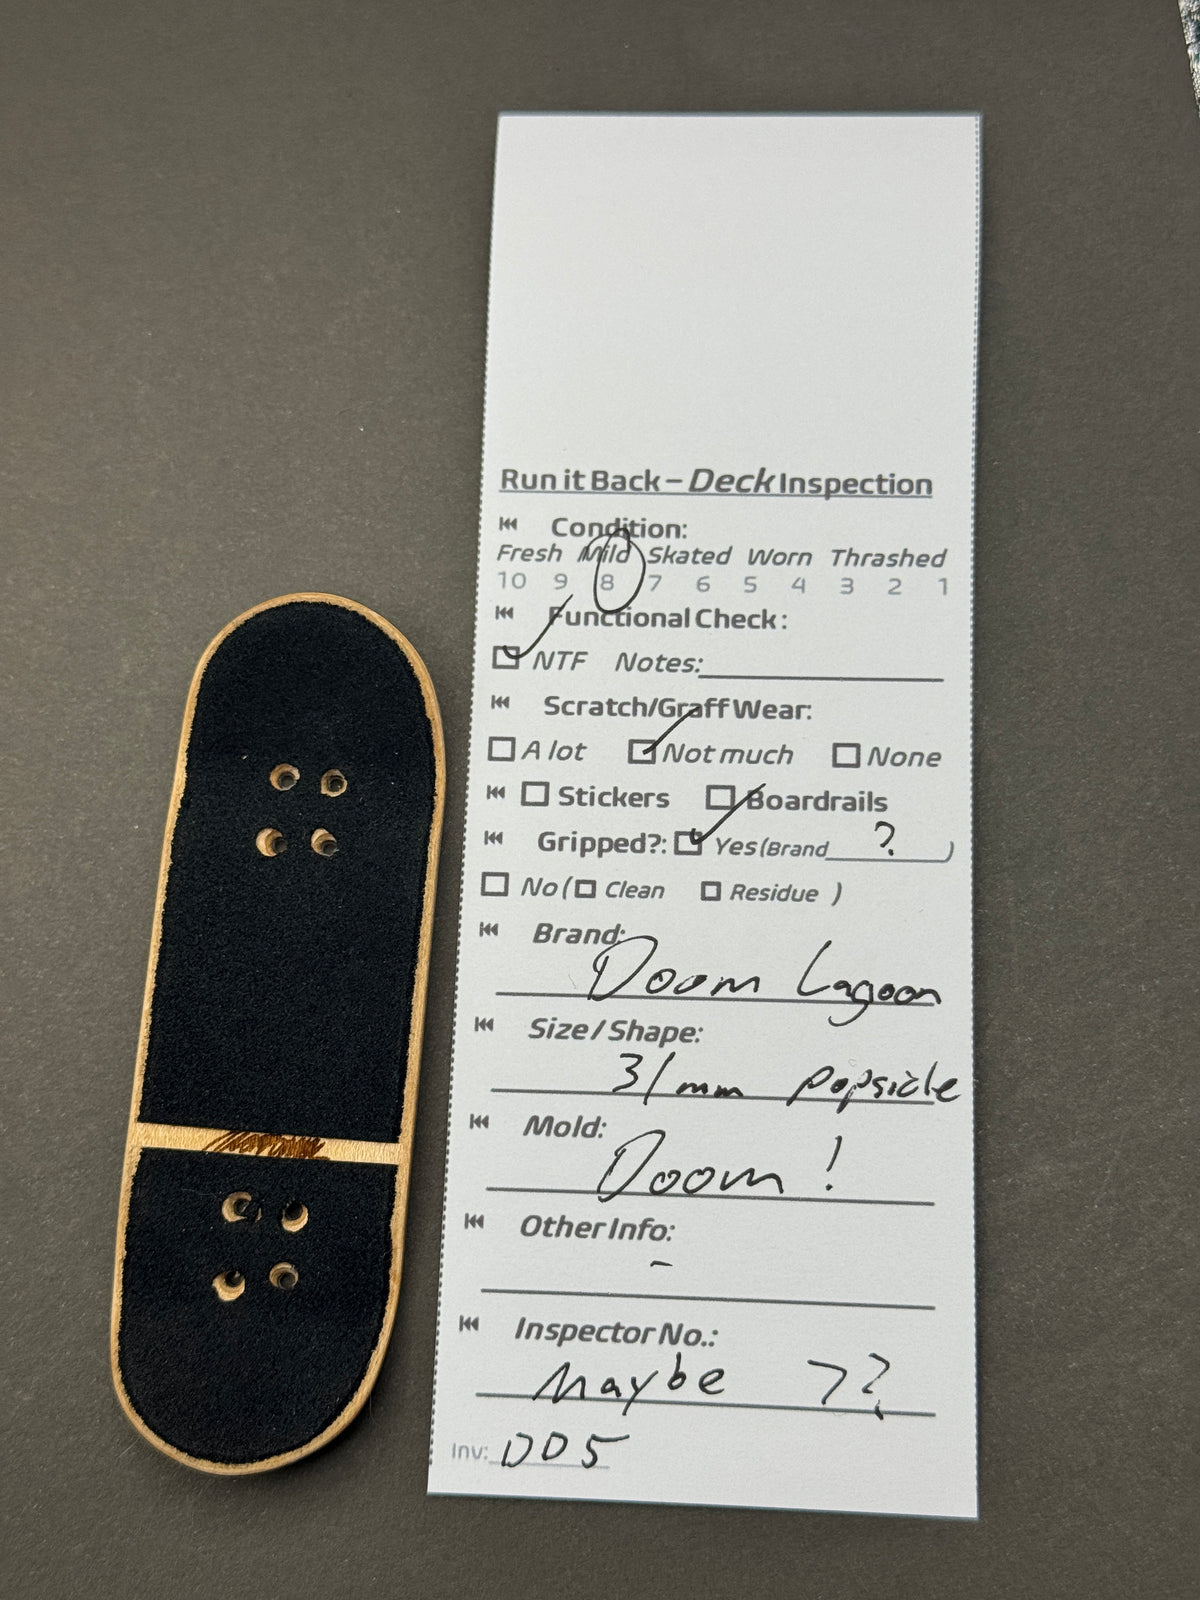 Run it Back – Deck Inspection
Condition:
Fresh Mild Skated Worn Thrashed
10 9 8 7 6 5 4 3 2 1
Functional Check:
NTF Notes:
Scratch/Graff Wear:
A lot Not much None
Stickers Boardrails
Gripped?: Yes (Brand ? )
No ( Clean Residue )
Brand:
Doom Lagoon
Size / Shape:
31mm popsicle
Mold:
Doom !
Other Info:
-
Inspector No.:
Maybe 7?
Inv: DD5